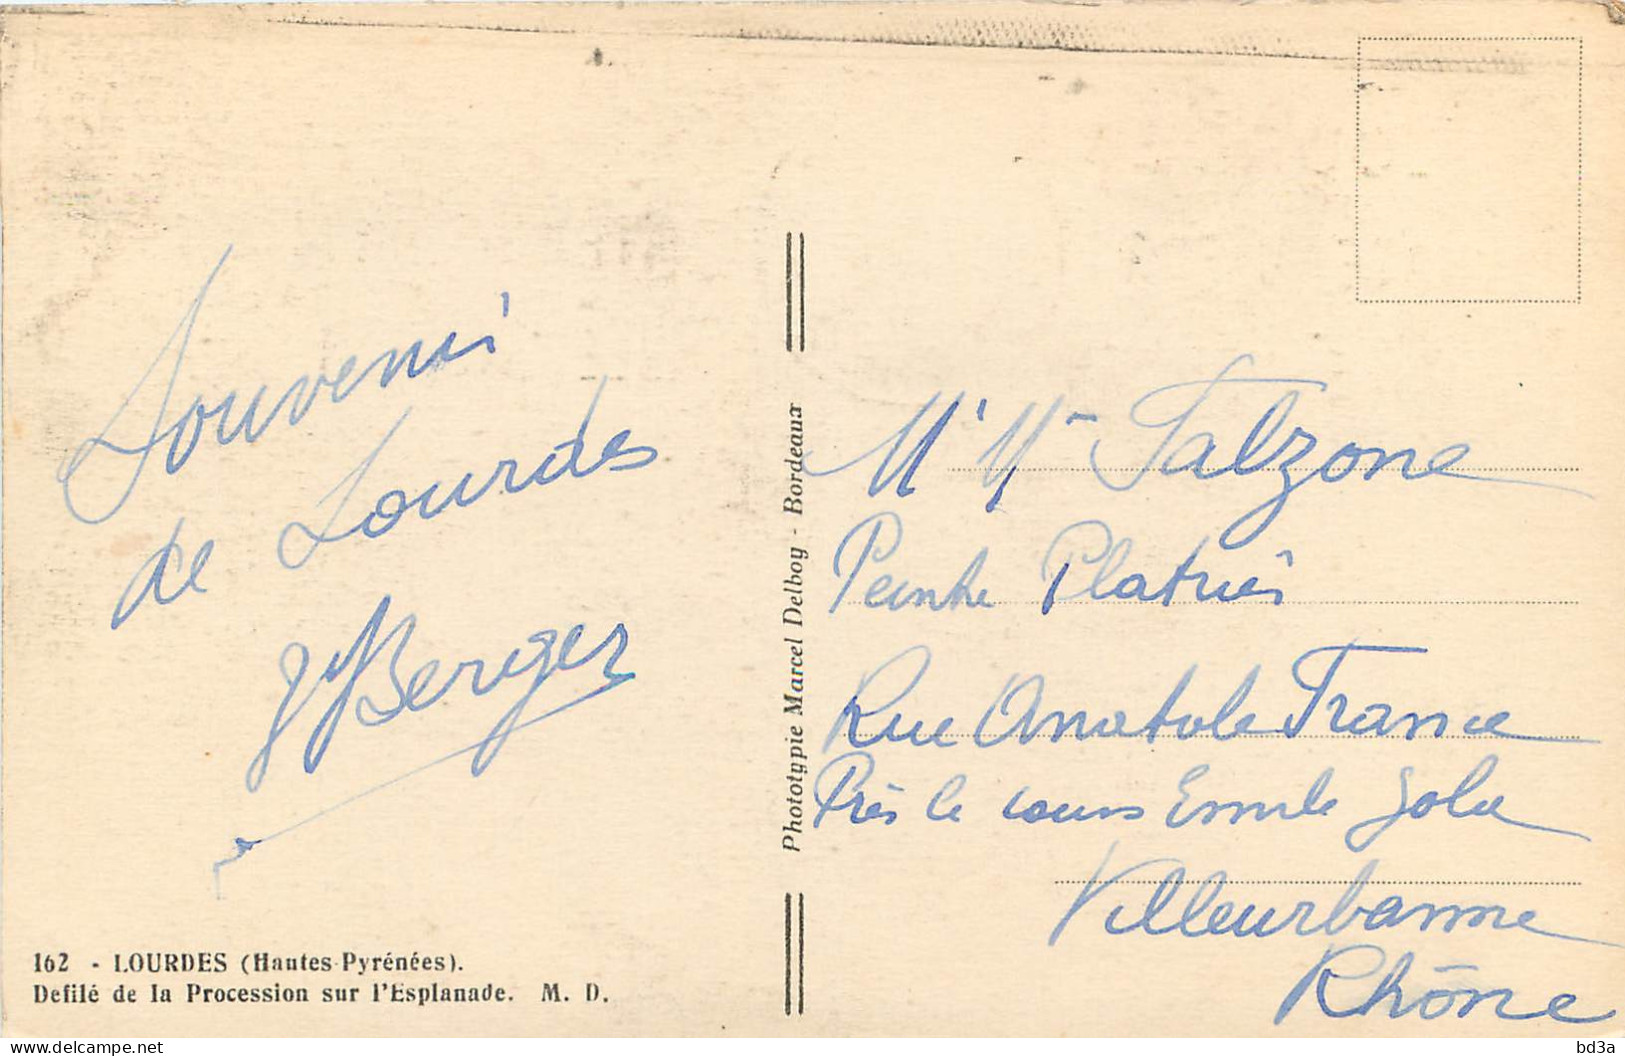 Souvenir
de Lourdes
Berger
162 - LOURDES (Hautes-Pyrénées).
Defilé de la Procession sur l'Esplanade. M. D.
Phototypie Marcel Delboy - Bordeaux
Mr Mme Falzone
Peintre Platrier
Rue Anatole France
Près le cours Emile Zola
Villeurbanne
Rhône
bd3a